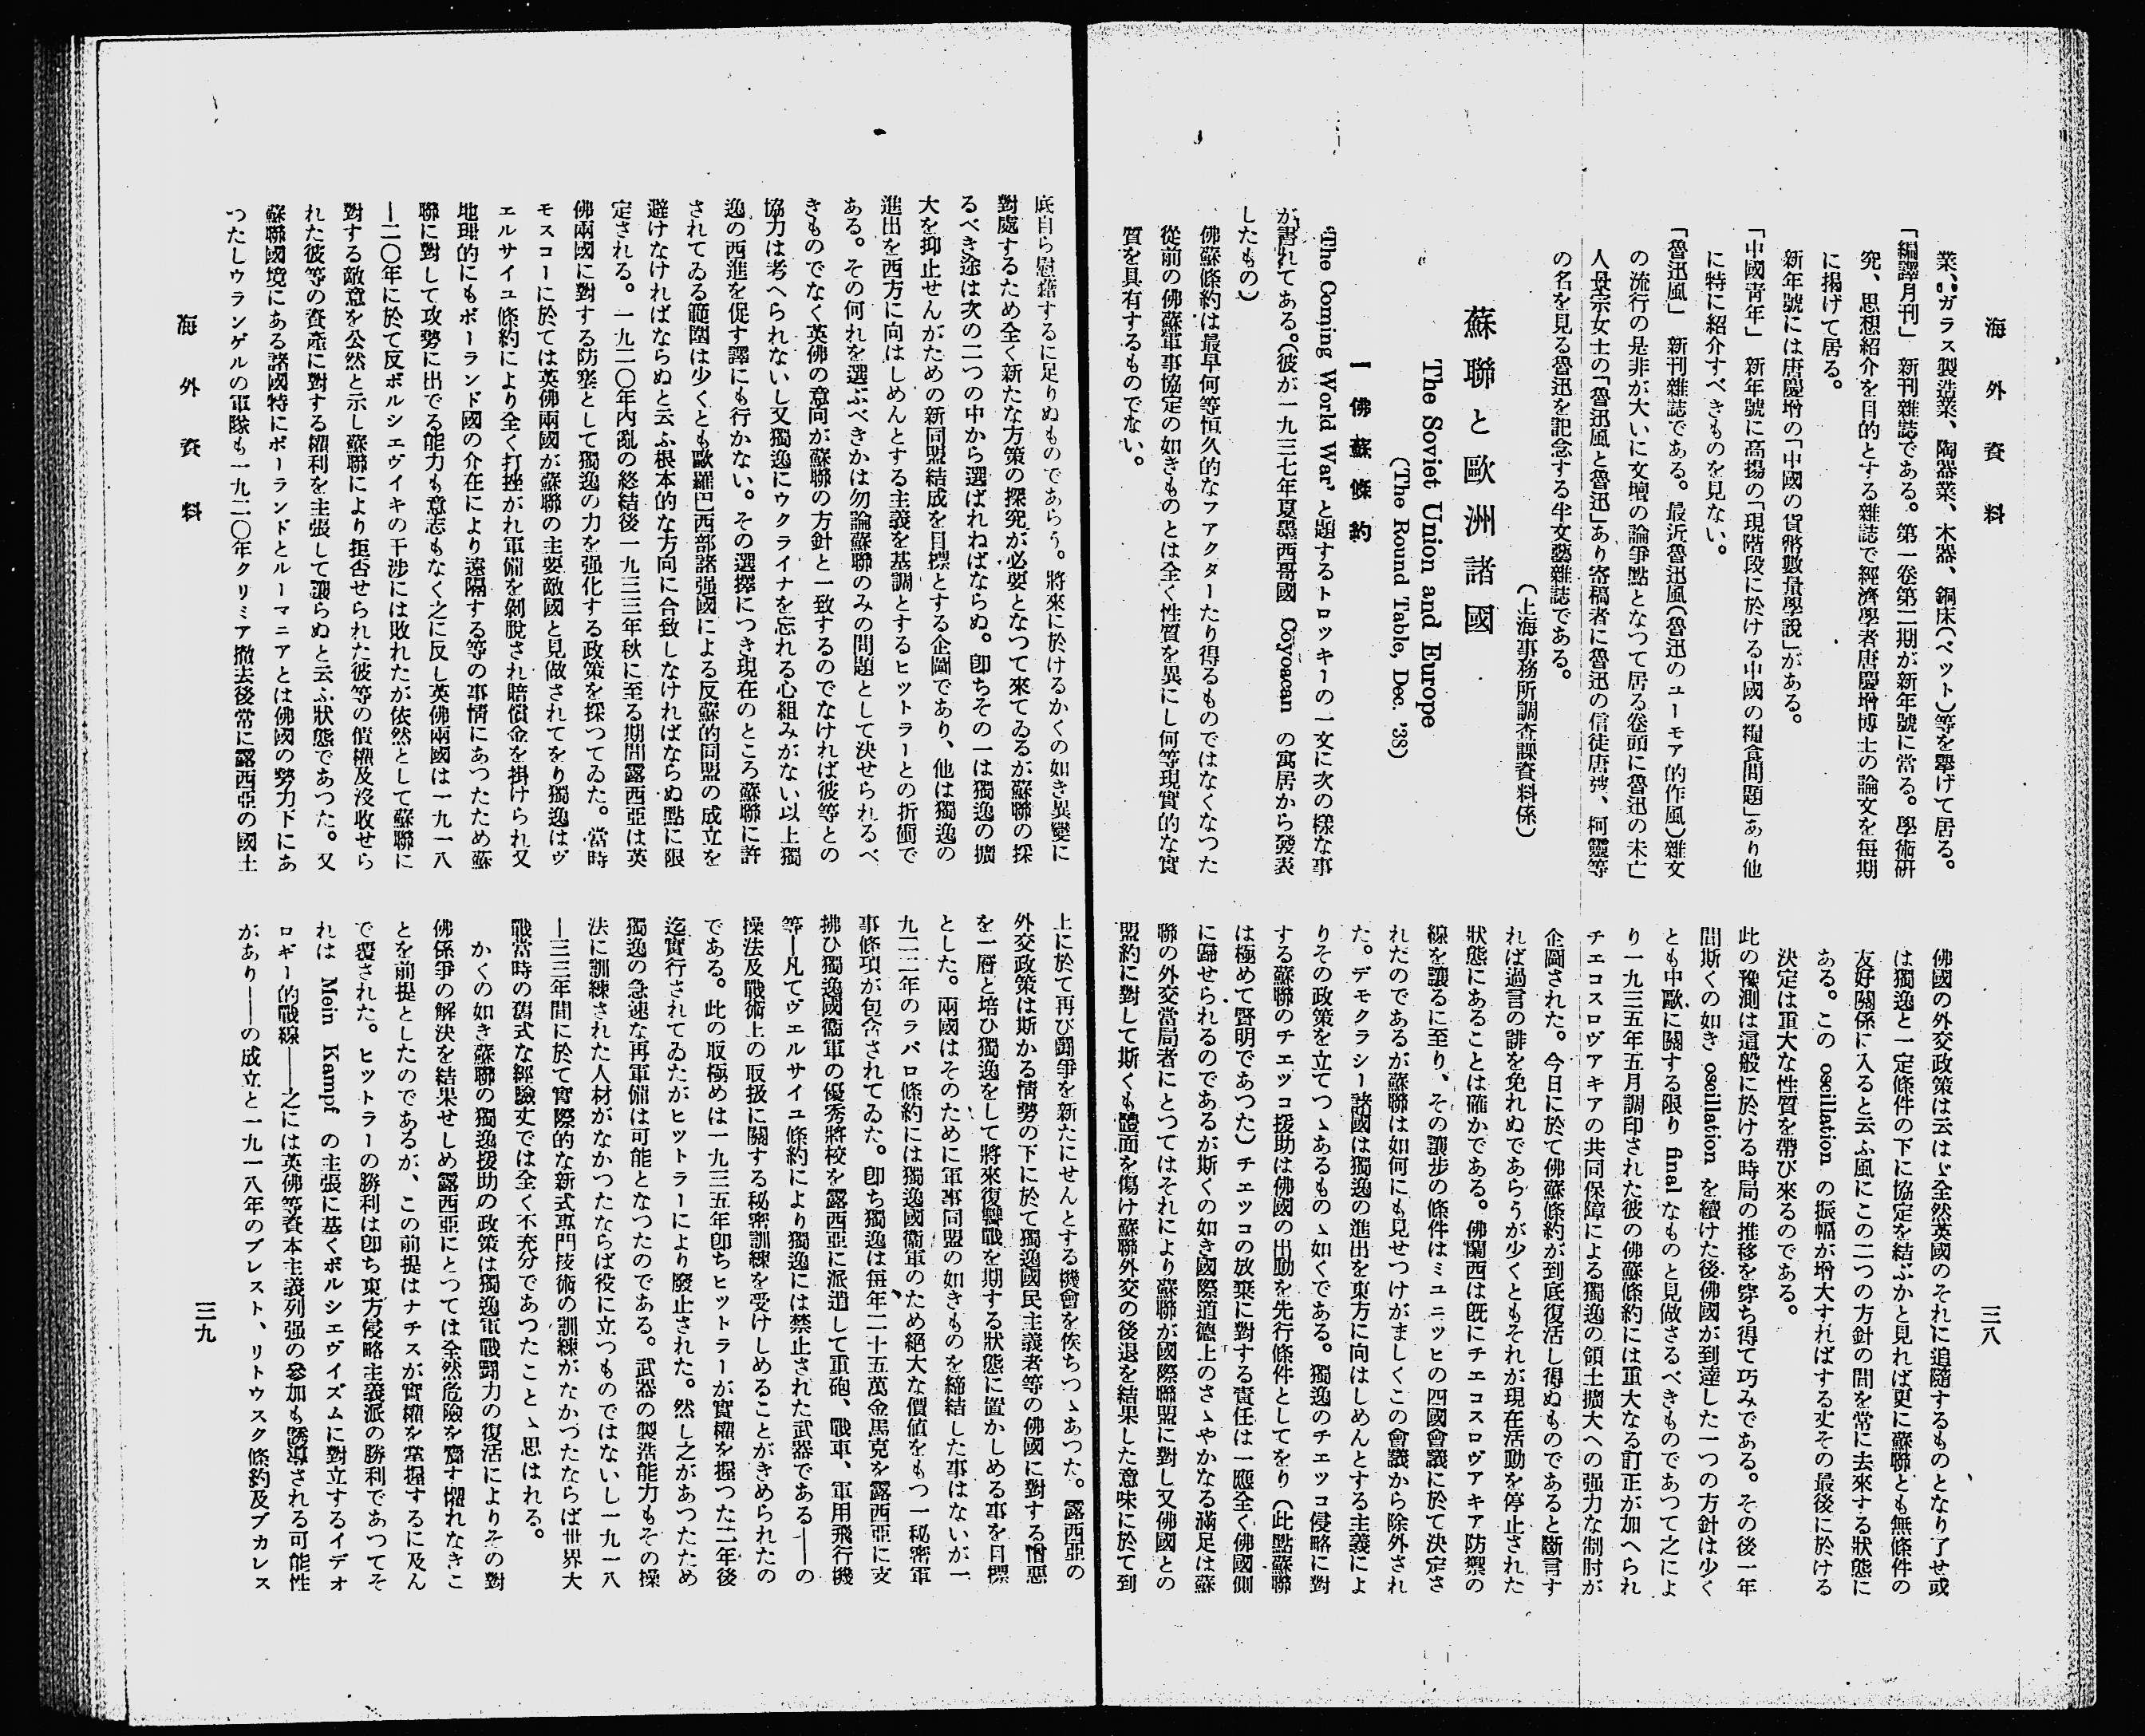 海外資料
三八
業、ガラス製造業、陶器業、木器、銅床(ベット)等を擧げて居る。
「編譯月刊」 新刊雜誌である。第一卷第二期が新年號に當る。學術研
究、思想紹介を目的とする雜誌で經濟學者唐慶增博士の論文を毎期
に揭げて居る。
新年號には唐慶增の「中國の貨幣數量學說」がある。
「中國靑年」 新年號に高揚の「現階段に於ける中國の糧食問題」あり他
に特に紹介すべきものを見ない。
「魯迅風」 新刊雜誌である。最近魯迅風(魯迅のユーモア的作風)雜文
の流行の是非が大いに文壇の論爭點となつて居る卷頭に魯迅の未亡
人景宗女士の「魯迅風と魯迅」あり寄稿者に魯迅の信徒唐弢、柯靈等
の名を見る魯迅を記念する半文藝雜誌である。
(上海事務所調査課資料係)
蘇聯と歐洲諸國
The Soviet Union and Europe
(The Round Table, Dec. '38)
一 佛蘇條約
‘The Coming World War’ と題するトロッキーの一文に次の樣な事
が書れてある。(彼が一九三七年夏墨西哥國 Coyoacan の寓居から發表
したもの)
佛蘇條約は最早何等恒久的なファクターたり得るものではなくなつた
從前の佛蘇軍事協定の如きものとは全く性質を異にし何等現實的な實
質を具有するものでない。
佛國の外交政策は云はゞ全然英國のそれに追隨するものとなり了せ或
は獨逸と一定條件の下に協定を結ぶかと見れば更に蘇聯とも無條件の
友好關係に入ると云ふ風にこの二つの方針の間を常に去來する狀態に
ある。この oscillation の振幅が增大すればする丈その最後に於ける
決定は重大な性質を帶び來るのである。
此の豫測は這般に於ける時局の推移を穿ち得て巧みである。その後一年
間斯くの如き oscillation を續けた後佛國が到達した一つの方針は少く
とも中歐に關する限り final なものと見做さるべきものであつて之によ
り一九三五年五月調印された彼の佛蘇條約には重大なる訂正が加へられ
チエコスロヴアキアの共同保障による獨逸の領土擴大への强力な制肘が
企圖された。今日に於て佛蘇條約が到底復活し得ぬものであると斷言す
れば過言の誹を免れぬであらうが少くともそれが現在活動を停止された
狀態にあることは確かである。佛蘭西は旣にチエコスロヴアキア防禦の
線を讓るに至り、その讓步の條件はミユニッヒの四國會議に於て決定さ
れたのであるが蘇聯は如何にも見せつけがましくこの會議から除外され
た。デモクラシー諸國は獨逸の進出を東方に向はしめんとする主義によ
りその政策を立てつゝあるものゝ如くである。獨逸のチエッコ侵略に對
する蘇聯のチエッコ援助は佛國の出動を先行條件としてをり(此點蘇聯
は極めて賢明であつた)チエッコの放棄に對する責任は一應全く佛國側
に歸せられるのであるが斯くの如き國際道德上のさゝやかなる滿足は蘇
聯の外交當局者にとつてはそれにより蘇聯が國際聯盟に對し又佛國との
盟約に對して斯くも體面を傷け蘇聯外交の後退を結果した意味に於て到
底自ら慰藉するに足りぬものであらう。將來に於けるかくの如き異變に
對處するため全く新たな方策の探究が必要となつて來てゐるが蘇聯の採
るべき途は次の二つの中から選ばれねばならぬ。卽ちその一は獨逸の擴
大を抑止せんがための新同盟結成を目標とする企圖であり、他は獨逸の
進出を西方に向はしめんとする主義を基調とするヒットラーとの折衝で
ある。その何れを選ぶべきかは勿論蘇聯のみの問題として決せられるべ
きものでなく英佛の意向が蘇聯の方針と一致するのでなければ彼等との
協力は考へられないし又獨逸にウクライナを忘れる心組みがない以上獨
逸の西進を促す譯にも行かない。その選擇につき現在のところ蘇聯に許
されてゐる範圍は少くとも歐羅巴西部諸强國による反蘇的同盟の成立を
避けなければならぬと云ふ根本的な方向に合致しなければならぬ點に限
定される。一九二〇年內亂の終結後一九三三年秋に至る期間露西亞は英
佛兩國に對する防塞として獨逸の力を强化する政策を採つてゐた。當時
モスコーに於ては英佛兩國が蘇聯の主要敵國と見做されてをり獨逸はヴ
エルサイユ條約により全く打挫がれ軍備を剝脫され賠償金を掛けられ又
地理的にもポーランド國の介在により遠隔する等の事情にあつたため蘇
聯に對して攻勢に出でる能力も意志もなく之に反し英佛兩國は一九一八
—二〇年に於て反ボルシエヴイキの干涉には敗れたが依然として蘇聯に
對する敵意を公然と示し蘇聯により拒否せられた彼等の債權及沒收せら
れた彼等の資產に對する權利を主張して讓らぬと云ふ狀態であつた。又
蘇聯國境にある諸國特にポーランドとルーマニアとは佛國の勢力下にあ
つたしウランゲルの軍隊も一九二〇年クリミア撤去後常に露西亞の國土
上に於て再び鬪爭を新たにせんとする機會を俟ちつゝあつた。露西亞の
外交政策は斯かる情勢の下に於て獨逸國民主義者等の佛國に對する憎惡
を一層と培ひ獨逸をして將來復讐戰を期する狀態に置かしめる事を目標
とした。兩國はそのために軍事同盟の如きものを締結した事はないが一
九二二年のラパロ條約には獨逸國衞軍のため絕大な價値をもつ一秘密軍
事條項が包含されてゐた。卽ち獨逸は每年二十五萬金馬克を露西亞に支
拂ひ獨逸國衞軍の優秀將校を露西亞に派遣して重砲、戰車、軍用飛行機
等—凡てヴエルサイユ條約により獨逸には禁止された武器である——の
操法及戰術上の取扱に關する秘密訓練を受けしめることがきめられたの
である。此の取極めは一九三五年卽ちヒットラーが實權を握つた二年後
迄實行されてゐたがヒットラーにより廢止された。然し之があつたため
獨逸の急速な再軍備は可能となつたのである。武器の製造能力もその操
法に訓練された人材がなかつたならば役に立つものではないし一九一八
—三三年間に於て實際的な新式專門技術の訓練がなかつたならば世界大
戰當時の舊式な經驗丈では全く不充分であつたことゝ思はれる。
かくの如き蘇聯の獨逸援助の政策は獨逸軍戰鬪力の復活によりその對
佛係爭の解決を結果せしめ露西亞にとつては全然危險を齎す惧れなきこ
とを前提としたのであるが、この前提はナチスが實權を掌握するに及ん
で覆された。ヒットラーの勝利は卽ち東方侵略主義派の勝利であつてそ
れは Mein Kampf の主張に基くボルシエヴイズムに對立するイデオ
ロギー的戰線——之には英佛等資本主義列强の參加も誘導される可能性
があり——の成立と一九一八年のブレスト、リトウスク條約及ブカレス
海外資料
三九